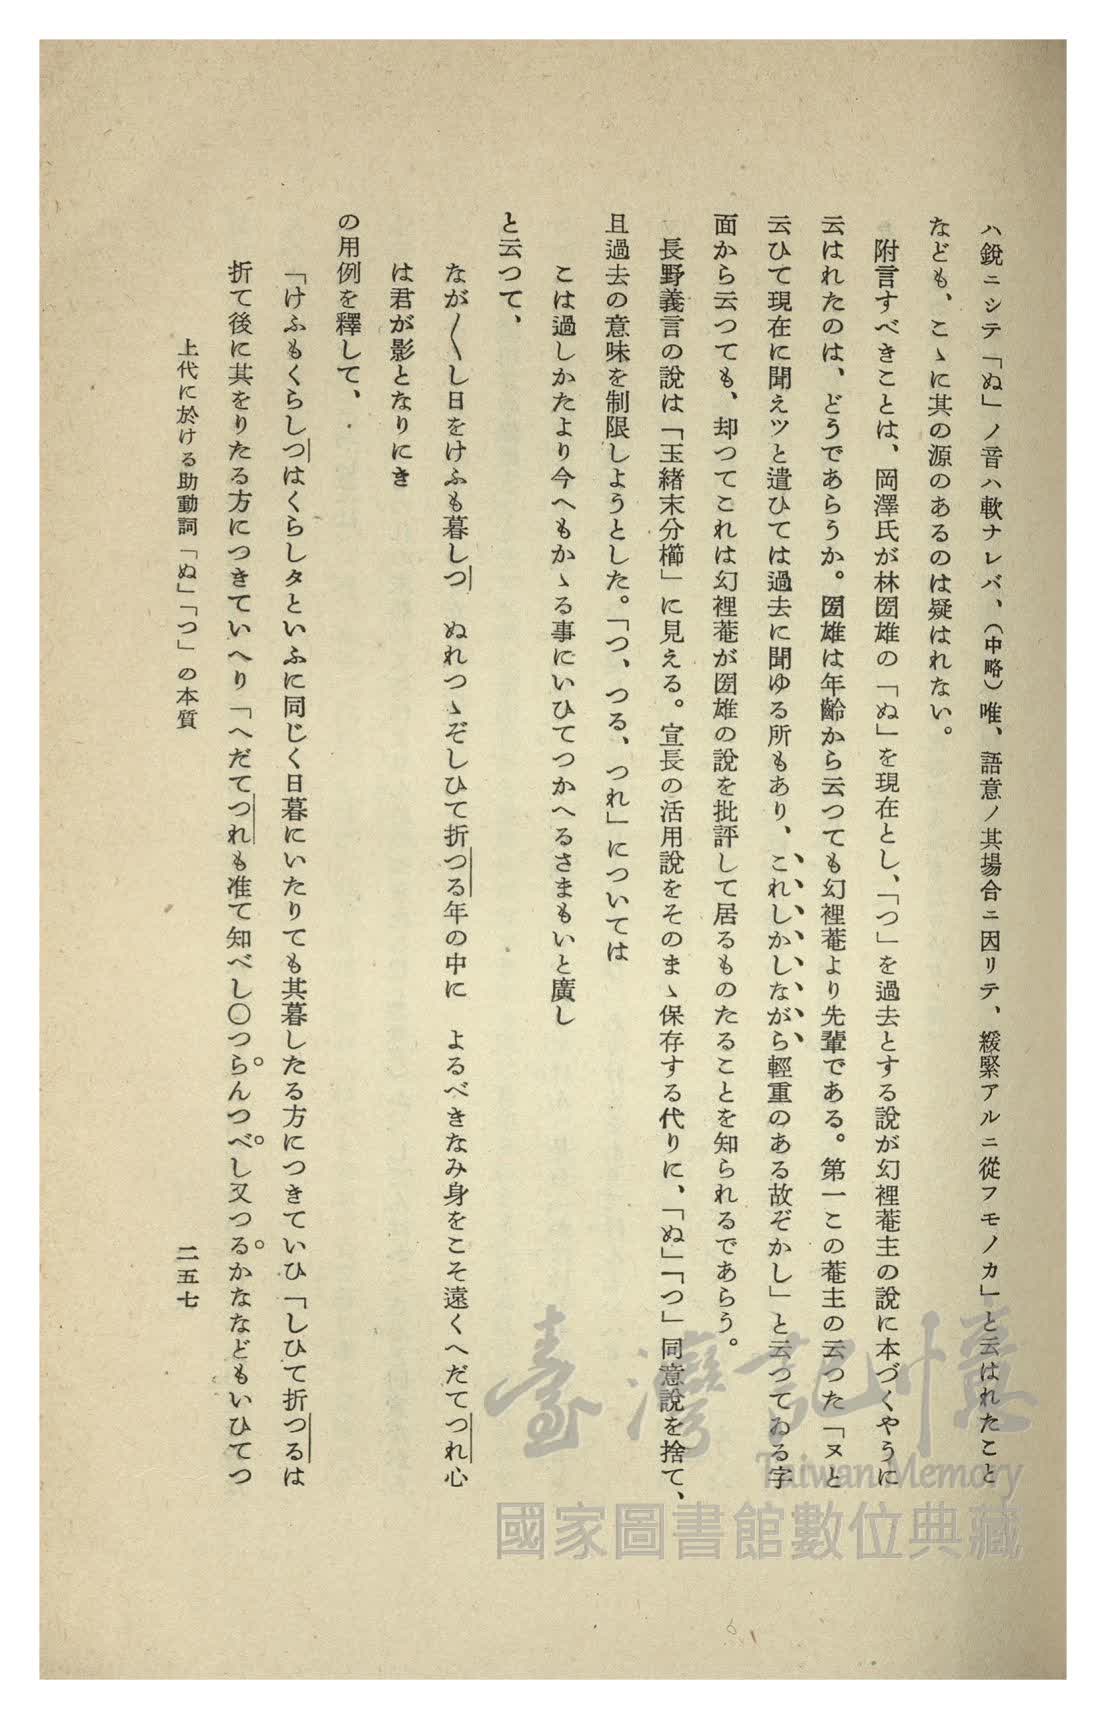 ハ銳ニシテ「ぬ」ノ音ハ軟ナレバ、（中略）唯、語意ノ其場合ニ因リテ、緩緊アルニ從フモノカ」と云はれたこと
なども、こゝに其の源のあるのは疑はれない。
附言すべきことは、岡澤氏が林圀雄の「ぬ」を現在とし、「つ」を過去とする說が幻裡菴主の說に本づくやうに
云はれたのは、どうであらうか。圀雄は年齡から云つても幻裡菴より先輩である。第一この菴主の云つた「ヌと
云ひて現在に聞えツと遣ひては過去に聞ゆる所もあり、これしかしながら輕重のある故ぞかし」と云つてゐる字
面から云つても、却つてこれは幻裡菴が圀雄の說を批評して居るものたることを知られるであらう。
長野義言の說は「玉緒末分櫛」に見える。宣長の活用說をそのまゝ保存する代りに、「ぬ」「つ」同意說を捨て、
且過去の意味を制限しようとした。「つ、つる、つれ」については
こは過しかたより今へもかゝる事にいひてつかへるさまもいと廣し
と云つて、
なが〱し日をけふも暮しつ　ぬれつゝぞしひて折つる年の中に　よるべきなみ身をこそ遠くへだてつれ心
は君が影となりにき
の用例を釋して、
「けふもくらしつはくらしタといふに同じく日暮にいたりても其暮したる方につきていひ「しひて折つるは
折て後に其をりたる方につきていへり「へだてつれも准て知べし〇つらんつべし又つるかななどもいひてつ
上代に於ける助動詞「ぬ」「つ」の本質
二五七
臺灣記憶
Taiwan Memory
國家圖書館數位典藏